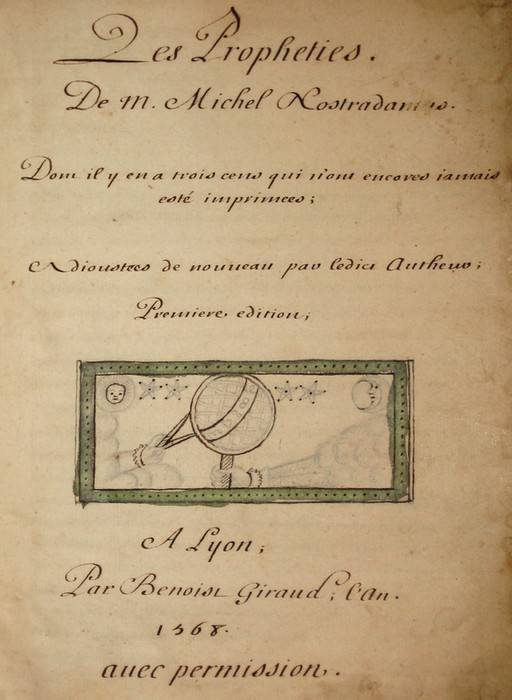 Les Propheties.
De M. Michel Nostradamus.
Dont il y en a trois cens qui n'ont encores iamais
esté imprimees;
Adioustees de nouveau par ledict Autheur;
Premiere edition;
A Lyon;
Par Benoist Giraud; l'An.
1568.
avec permission.